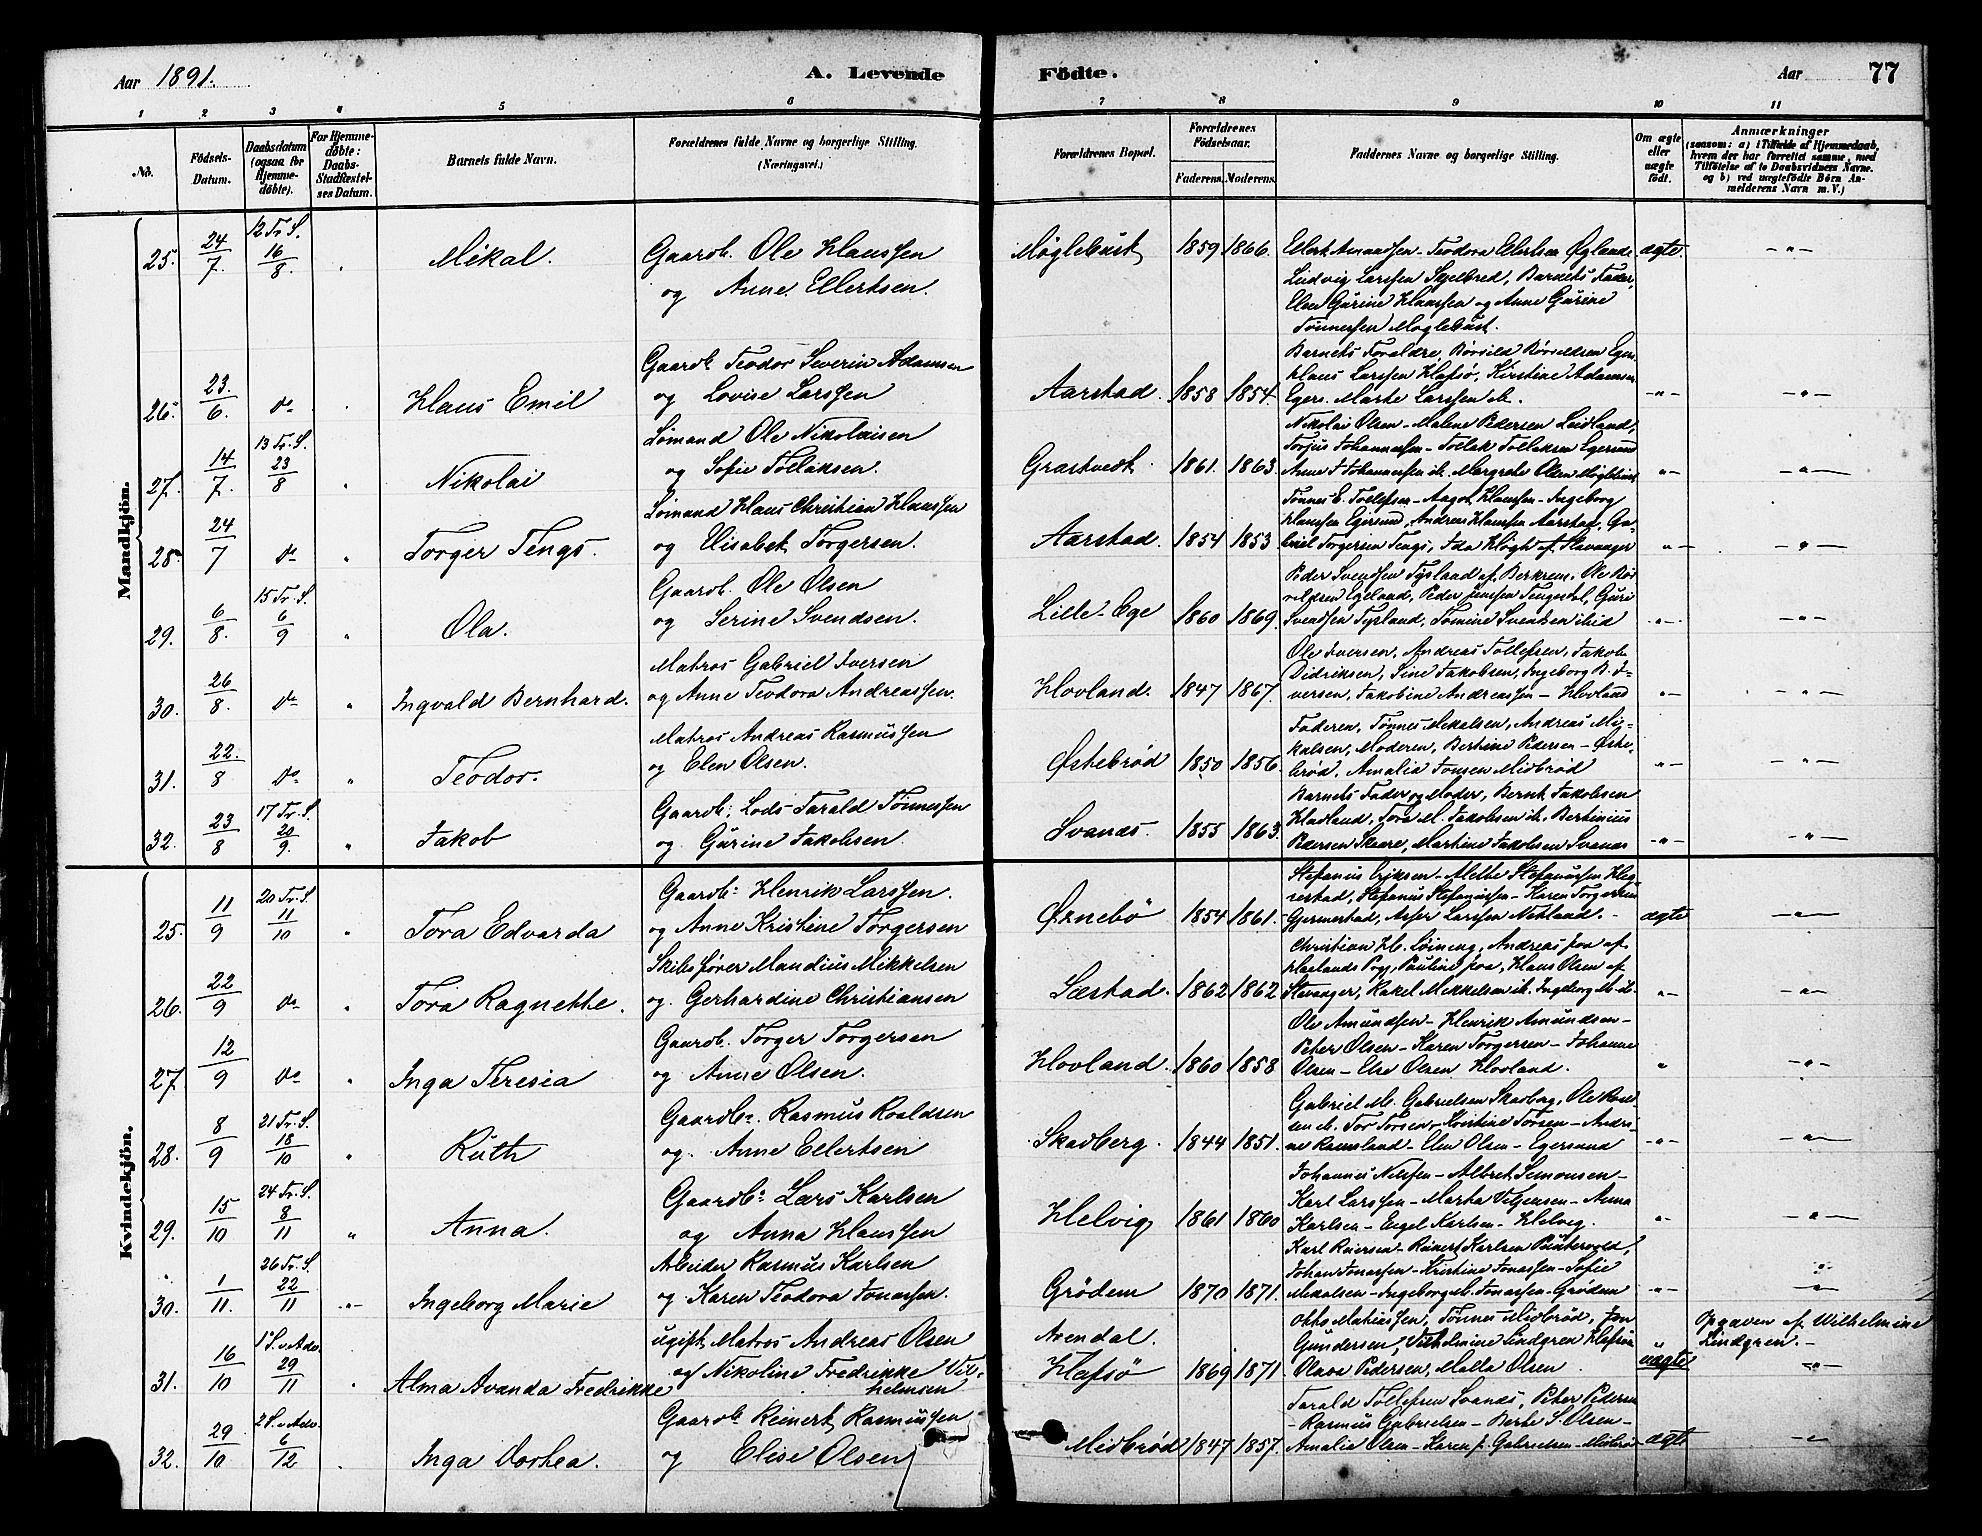 Aar 1891.
A. Levende Födte.
Aar 77
1 2 3 4 5 6 7 8 9 10 11
No.
Födsels-Datum.
Daabsdatum (ogsaa for Hjemmedöbte).
For Hjemmedöbte: Daabs-Stadfæstelses Datum.
Barnets fulde Navn.
Forældrenes fulde Navne og borgerlige Stilling. (Næringsvei.)
Forældrenes Bopæl.
Forældrenes Födselsaar.
Faderens. Moderens.
Faddernes Navne og borgerlige Stilling.
Om ægte eller uægte födt.
Anmærkninger
(saasom: a) i Tilfælde af Hjemmedaab, hvem der har forrettet samme, med Tilföielse af to Daabsvidners Navne. og b) ved uægtefödte Börn Anmelderens Navn m. V.)
Mandkjön.
25. 24/7. 12 Tr. S. 16/8. " Mikal. Gaardb. Ole Klaussen og Anne Ellertsen. Møglebust 1859 1866. Ellert Amundsen - Teodora Ellertsen Øglende
Ludvig Larssen Skjelbred, Barnets Fader,
Elen Gurine Klaussen og Anne Gurine
Tønnessen Møglebust. ægte. -"-
26. 23/6. do " Klaus Emil Gaardb. Teodor Severin Adamsen og Lovise Larssen Aarstad. 1858 1854. Barnets Foraldre, Børsild Børsildsen Ege,
Klaus Larssen Hafsø, Kirstine Adamsen
Ege. Marte Larssen ib. -"- -"-
27. 14/7. 13 Tr. S. 23/8 " Nikolai Sømand Ole Nikolaisen og Sofie Tollaksen. Grastvedt. 1861. 1863. Nikolai Olsen - Malene Pedersen Leidland,
Torjus Johannessen - Tollak Tollaksen Egersund
Anne Johannessen ib. Margrete Olsen "- -"-
28. 24/7 do " Torger Tengs. Sømand Klaus Christian Klaussen og Elisabet Torgersen. Aarstad. 1854 1853 Tønnes E. Tollefsen - Aagot Klaussen - Ingeborg
Klaussen Egersund, Andreas Klaussen Aarstad, Ga-
briel Torgersen Tengs, Ida Høgh af Stavanger "- -"-
29. 6/8. 15 Tr. S. 6/9 " Ola. Gaardb. Ole Olsen og Serine Svendsen. Lille-Ege 1860 1869. Peder Svendsen Tysland af Berkrem. Ole
Egeland, Peder Jenssen Tengesdal, Guri
Svendsen Tysland, Tomine Svendsen ibid "- -"-
30. 26/8. do " Ingvald Bernhard. Matros Gabriel Iversen og Anne Teodora Andreassen. Hovland. 1847 1867. Ole Iversen, Andreas Tollefsen, Jakob
Didriksen, Sine Jakobsen, Ingeborg B. I-
versen, Jakobine Andreassen - Hovland "- -"-
31. 22./8 do " Teodor. Matros Andreas Rasmussen og Elen Olsen. Østebrød 1850 1856. Faderen, Tønnes Mikalsen, Andreas Mi-
kalsen, Moderen, Bertine Pedersen - Øste-
brød, Amalia Jonsen Midbrød -"- -"-
32. 23/8 17 Tr. S. 20/9. " Jakob Gaardb. Lods Tarald Tønnessen og Gurine Jakobsen. Svanæs. 1855 1863. Barnets Fader og Moder, Bernt Jakobsen
Hadland, Tora M. Jakobsen ib. Bertinius
Pedersen Skaare, Martine Jakobsen Svanæs -"- -"-
Kvindekjön.
25. 11/9 20 Tr. S. 11/10 " Tora Edvarda Gaardb: Henrik Larssen. og Anne Kristine Torgersen Ørnebö 1854 1861. Stefanus Eriksen - Mette Stefanussen
Stefanus Stefanussen - Karen Torgersen
Gjermestad, Asser Larssen Netland. ægte -"-
26. 22/9 do " Tora Ragnette. Skibsfører Mandius Mikkelsen og Gerhardine Christiansen Sæstad. 1862 1862 Christian H. Løining, Andreas af
Haelands Pgj, Pauline, Klaus Olsen af
Stavanger, Rakel Mikkelsen ib. Ingeborg M. ib. "- -"-
27. 12/9 do " Inga Teresia Gaardb. Torger Torgersen og Anne Olsen. Hovland. 1860 1858 Ole Amundsen - Henrik Amundsen -
Peter Olsen - Karen Torgersen - Johanne
Olsen - Else Olsen Hovland. " -"-
28. 8/9 21 Tr. S. 18/10 " Ruth Gaardb: Rasmus Roaldsen og Anne Ellertsen Skadberg. 1844 1851. Gabriel M. Gabrielsen Skadberg, Ole Roald-
sen ib. Tor Torsen - Kristine Torsen - Andri-
ne Ramsland - Elen Olsen - Egersund -"- -"-
29. 15/10 24 Tr. S. 8/11 " Anna. Gaardb: Lars Karlsen og Anna Klaussen Helvig 1861 1860 Johannes Nilssen - Albret Simonsen -
Karl Larssen - Marta - Anna
Karlsen - Engel Karlsen - Helvig. "- -"-
30. 1/11. 26 Tr. S. 22/11 -"- Ingeborg Marie Arbeider Rasmus Karlsen og Karen Teodora Jonassen. Grödem 1870 1871. Karl Reiersen - Reinert Karlsen Puntervold,
Johan Jonassen - Kristine Jonassen - Sofie
Mikalsen - Ingeborg M. Jonassen - Grødem -"- -"-
31. 16/10 1 S. v. Adv. 29/11 " Alma Avanda Fredrikke ugift Matros Andreas Olsen af Nikoline Fredrikke Vil-
helmsen Arendal. Hafsø 1869 1871 Otto Matiassen, Tønnes Midbrød, Jon
Gundersen, Vilhelmine Lindgren Hafsø
Olava Pedersen, Malla Olsen uægte Opgaven af Wilhelmine Lindgren. -"-
32. 29/10 2 S. v. Adv. 6/12 . Inga Dorthea. Gaardb. Reinert Rasmussen og Elise Olsen Midbrød 1847 1857. Tarald Tollefsen Svanæs, Peter Pedersen
- Rasmus Gabrielsen - Berte S. Olsen -
Amalia Olsen - Karen J. Gabrielsen - Midbrød ægte -"-